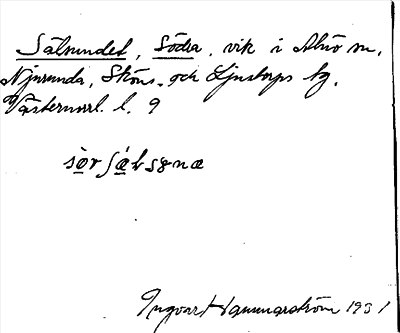 Sälsundet, Södra, vik i Alnö sn,
Njurunda, Sköns, och Ljustorps tg,
Västernorrl. l. 9
Ingvart Hammarström 1931